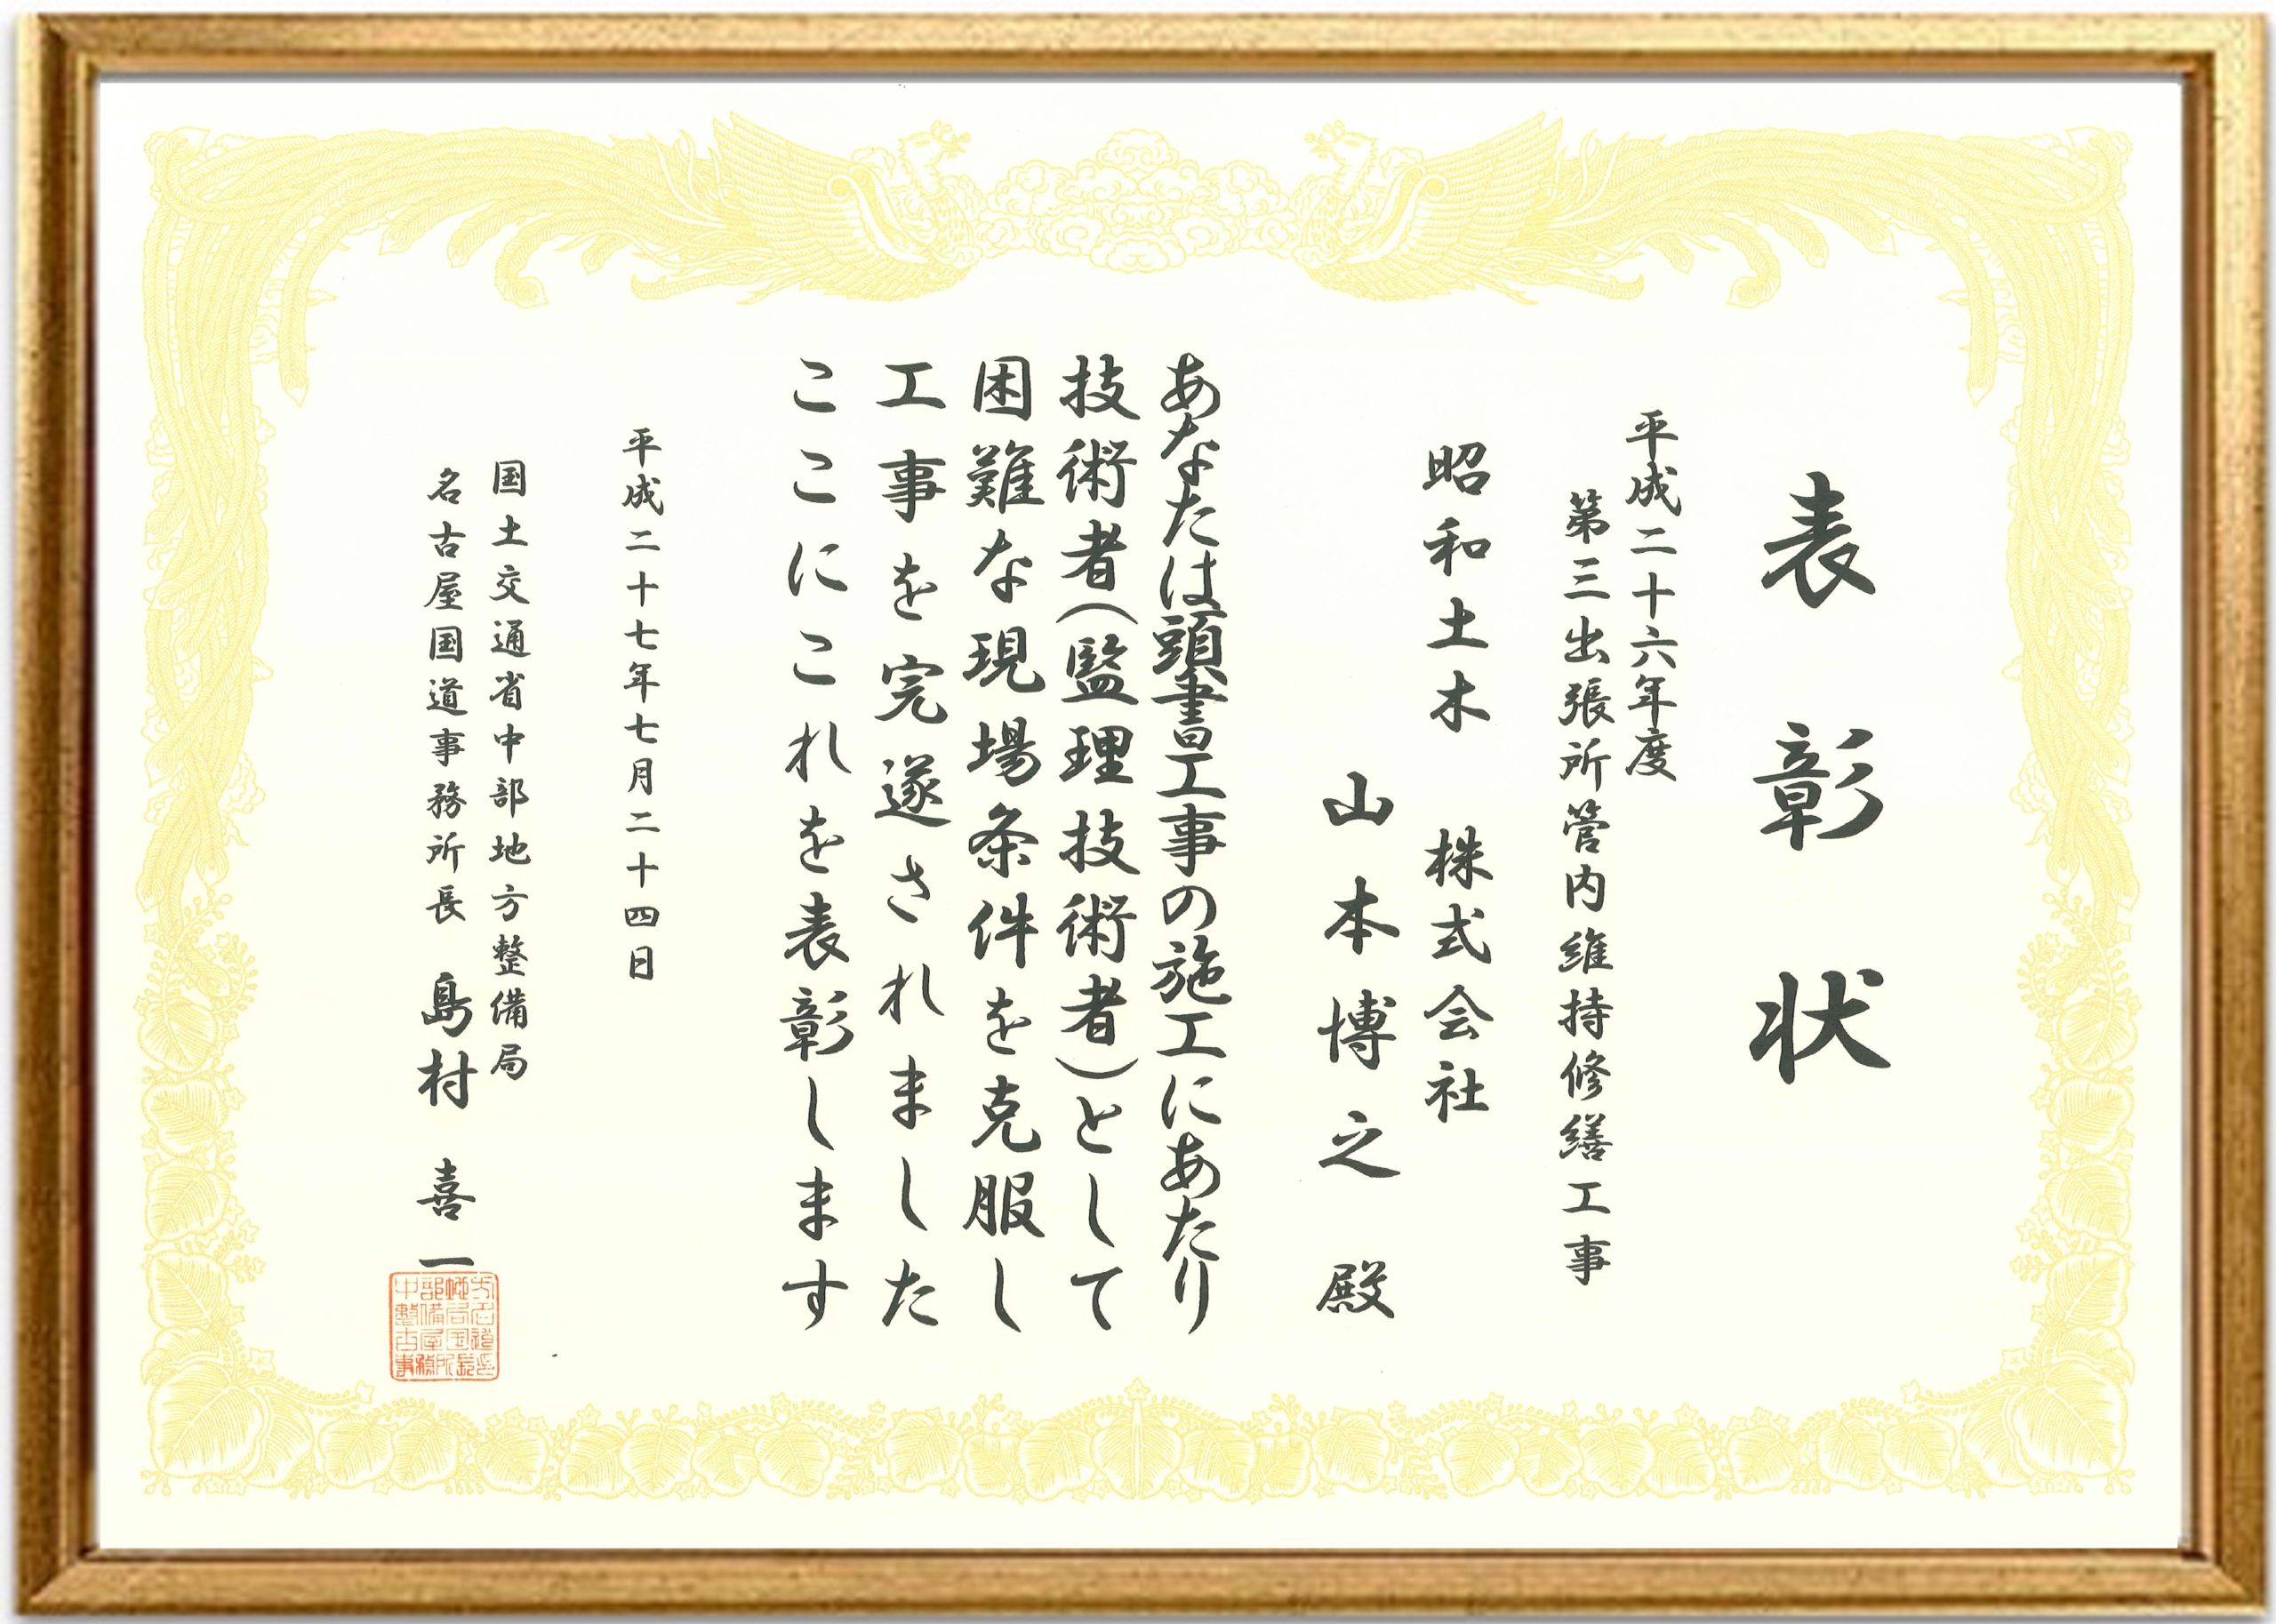 表彰状
平成二十六年度
第三出張所管内維持修繕工事
昭和土木 株式会社
山本博之 殿
あなたは頭書工事の施工にあたり
技術者(監理技術者)として
困難な現場条件を克服し
工事を完遂されました
ここにこれを表彰します
平成二十七年七月二十四日
国土交通省中部地方整備局
名古屋国道事務所長 島村 喜一